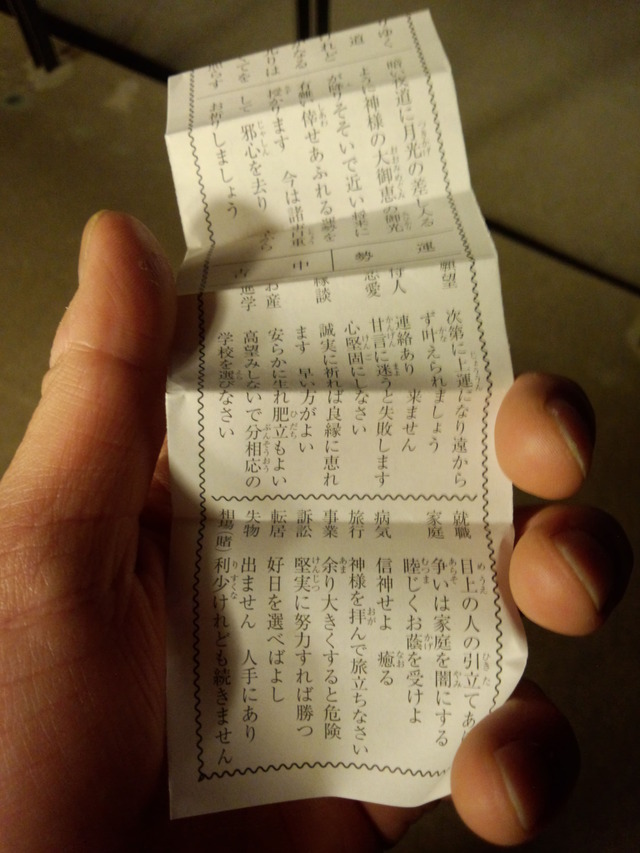 りゆく
道
れど
なる
りは
てを
らす
暗い夜道に月光の差し入る
ように神様の大御恵の御光
が降りそそいで近い将来に
有難い倖せあふれる運勢を
授かります 今は
して 邪心を去り
お祈りしましょう
運勢 中吉
願望 次第に上運になり遠から
ず叶えられましょう
待人 連絡あり 来ません
恋愛 甘言に迷うと失敗します
心堅固にしなさい
縁談 誠実に祈れば良縁に恵れ
ます 早い方がよい
お産 安らかに生れ肥立もよい
進学 高望みしないで分相応の
学校を選びなさい
就職 目上の人の引立てあり
家庭 争いは家庭を闇にする
睦じくお蔭を受けよ
病気 信神せよ 癒る
旅行 神様を拝んで旅立ちなさい
事業 余り大きくすると危険
訴訟 堅実に努力すれば勝つ
転居 好日を選べばよし
失物 出ません 人手にあり
相場(賭) 利少けれども続きません